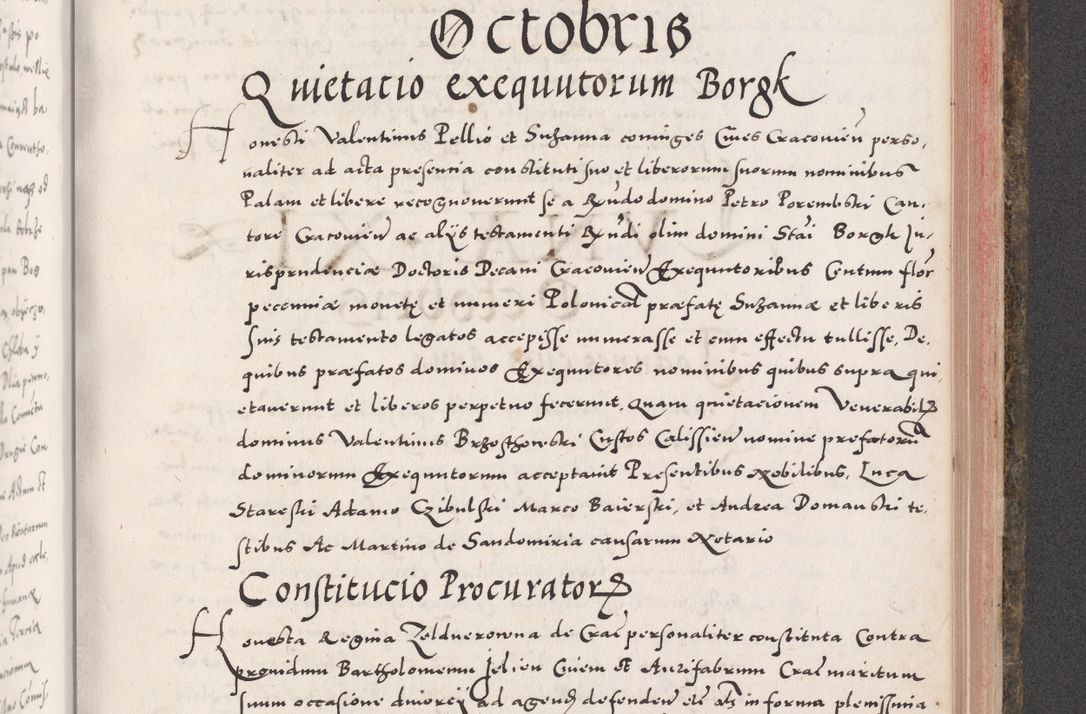 Octobris
Quietacio exequutorum Borgk
Honesti Valentinus Pellio et Suzanna coniuges Cives Cracovień perso,
naliter ad acta presencia constituti suo et liberorum suorum nominibus
Palam et libere recognoverunt se a Rńdo domino Petro Porembski Can,
tore Cracovień ac alijs testamenti Rńdi olim domini Stai Borgk Ju,
risprudenciæ Doctoris Decani Cracovień Exequutoribus Centum flor
pecuniæ monetę et numeri Polonical præfatę Suzannæ et liberis
suis testamento legatos accepisse numerasse et cum effectu tullisse, De,
quibus præfatos dominos Exequutores nominibus quibus supra qui,
etaverunt et liberos perpetuo fecerunt, Quam quietacionem Venerabilis
dominus Valentinus Brzosthowski Custos Calissień nomine prefatorum
dominorum Exequutorum acceptavit Presentibus Nobilibus, Luca
Stareski Adamo Czibulski Marco Baierski, et Andrea Domanski te,
stibus Ac Martino de Sandomiria causarum Notario
Constitucio Procuratoris
Honesta Regina Zeldnerowna de Crac personaliter constituta Contra
providum Bartholomeum Jelien Civem et Aurifabrum Crac maritum
suum occasione divorcij ad agend defendeń etc in forma plenissima